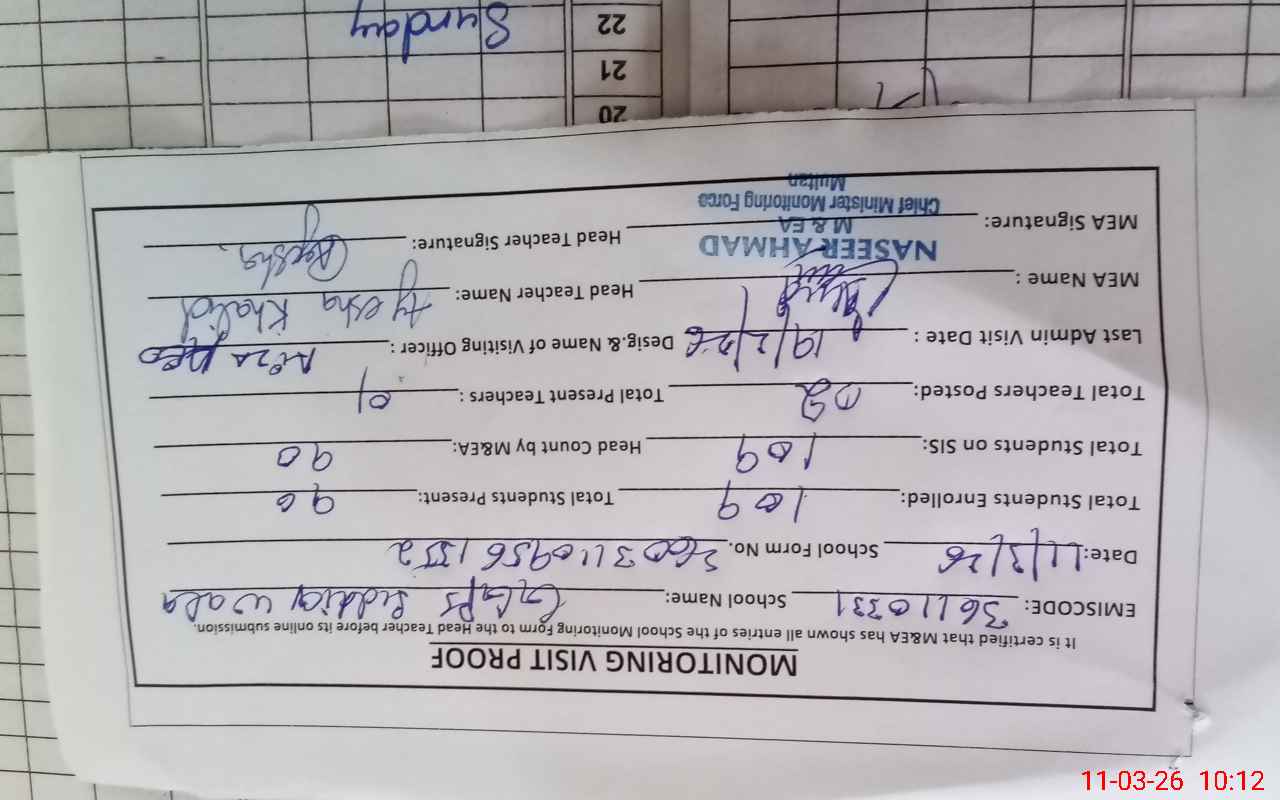 MONITORING VISIT PROOF
It is certified that M&EA has shown all entries of the School Monitoring Form to the Head Teacher before its online submission.
EMISCODE: 36110331 School Name: GGPS Siddiq wala
Date: 11/3/26 School Form No. 3603110956152
Total Students Enrolled: 109 Total Students Present: 90
Total Students on SIS: 109 Head Count by M&EA: 90
Total Teachers Posted: 02 Total Present Teachers : 01
Last Admin Visit Date : 19/2/26 Desig.& Name of Visiting Officer :
MEA Name : Head Teacher Name: Ayesha Khalid
NASEER AHMAD
M & EA
Chief Minister Monitoring Force
Multan
MEA Signature: Head Teacher Signature: Ayesha
20
21
22 Sunday
11-03-26 10:12